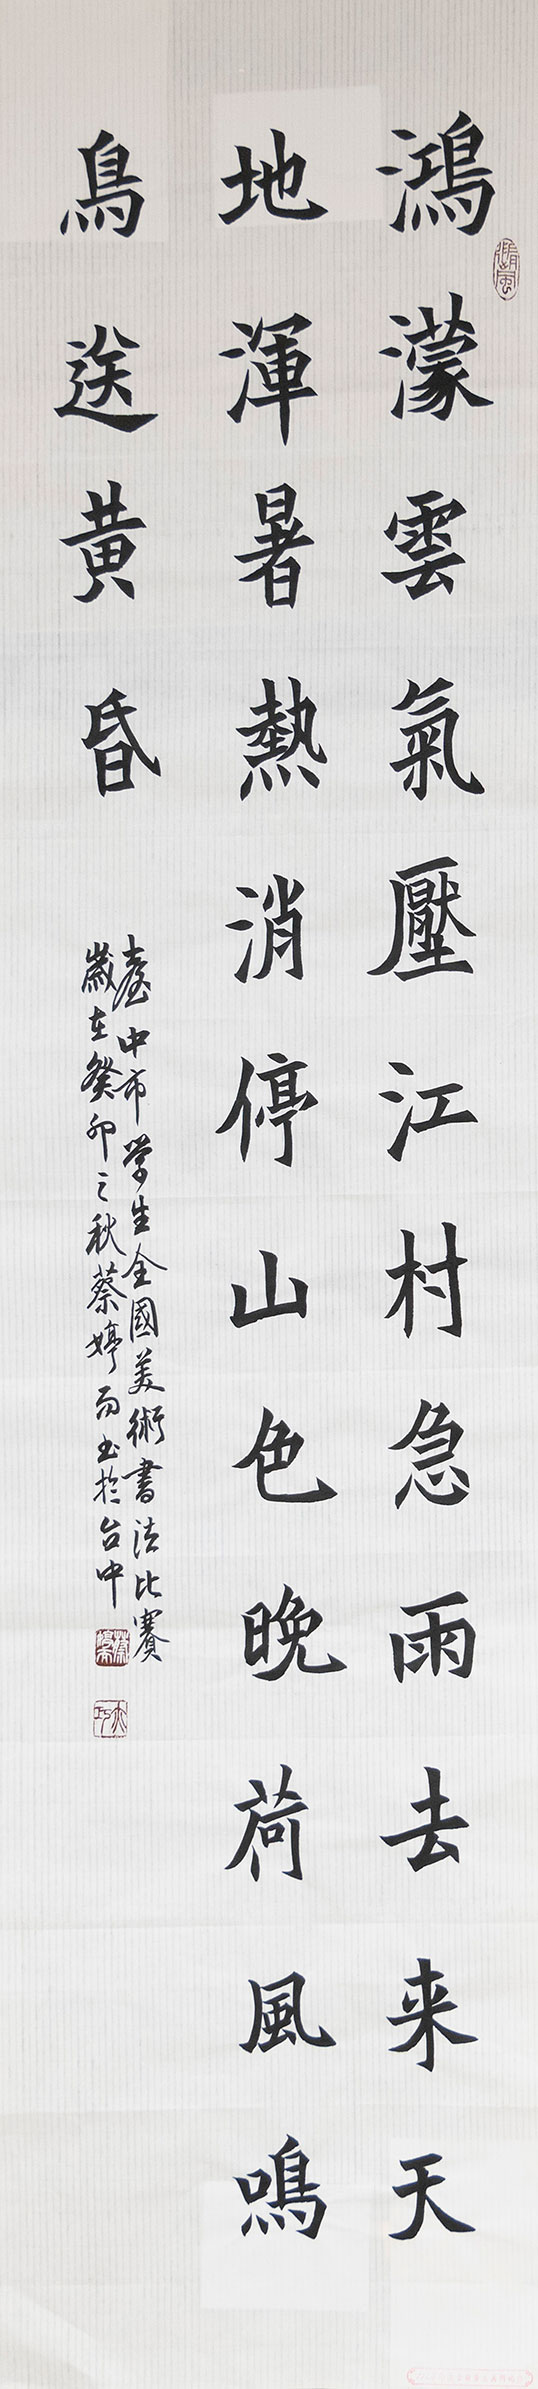 鴻濛雲氣壓江村急雨去来天
地渾暑熱消停山色晚荷風鳴
鳥送黄昏
臺中市学生全國美術書法比賽
歲在癸卯之秋蔡婷而书於台中
清風